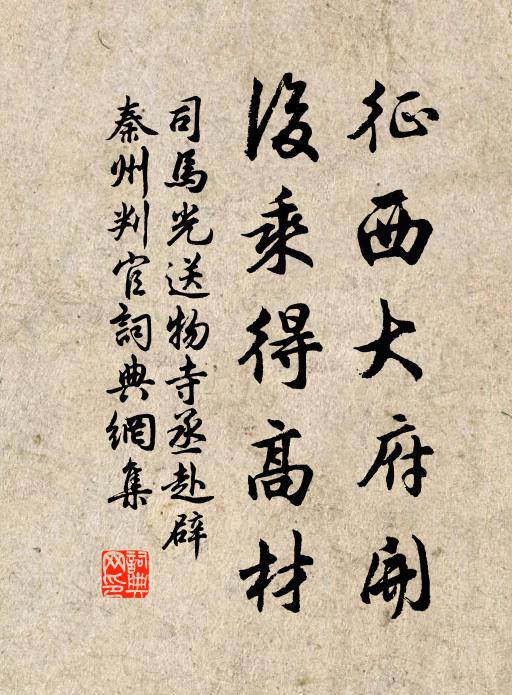 征西大府開
後乘得高材
司馬光送物寺丞赴辟
秦州判官詞典網集
詞典
网印